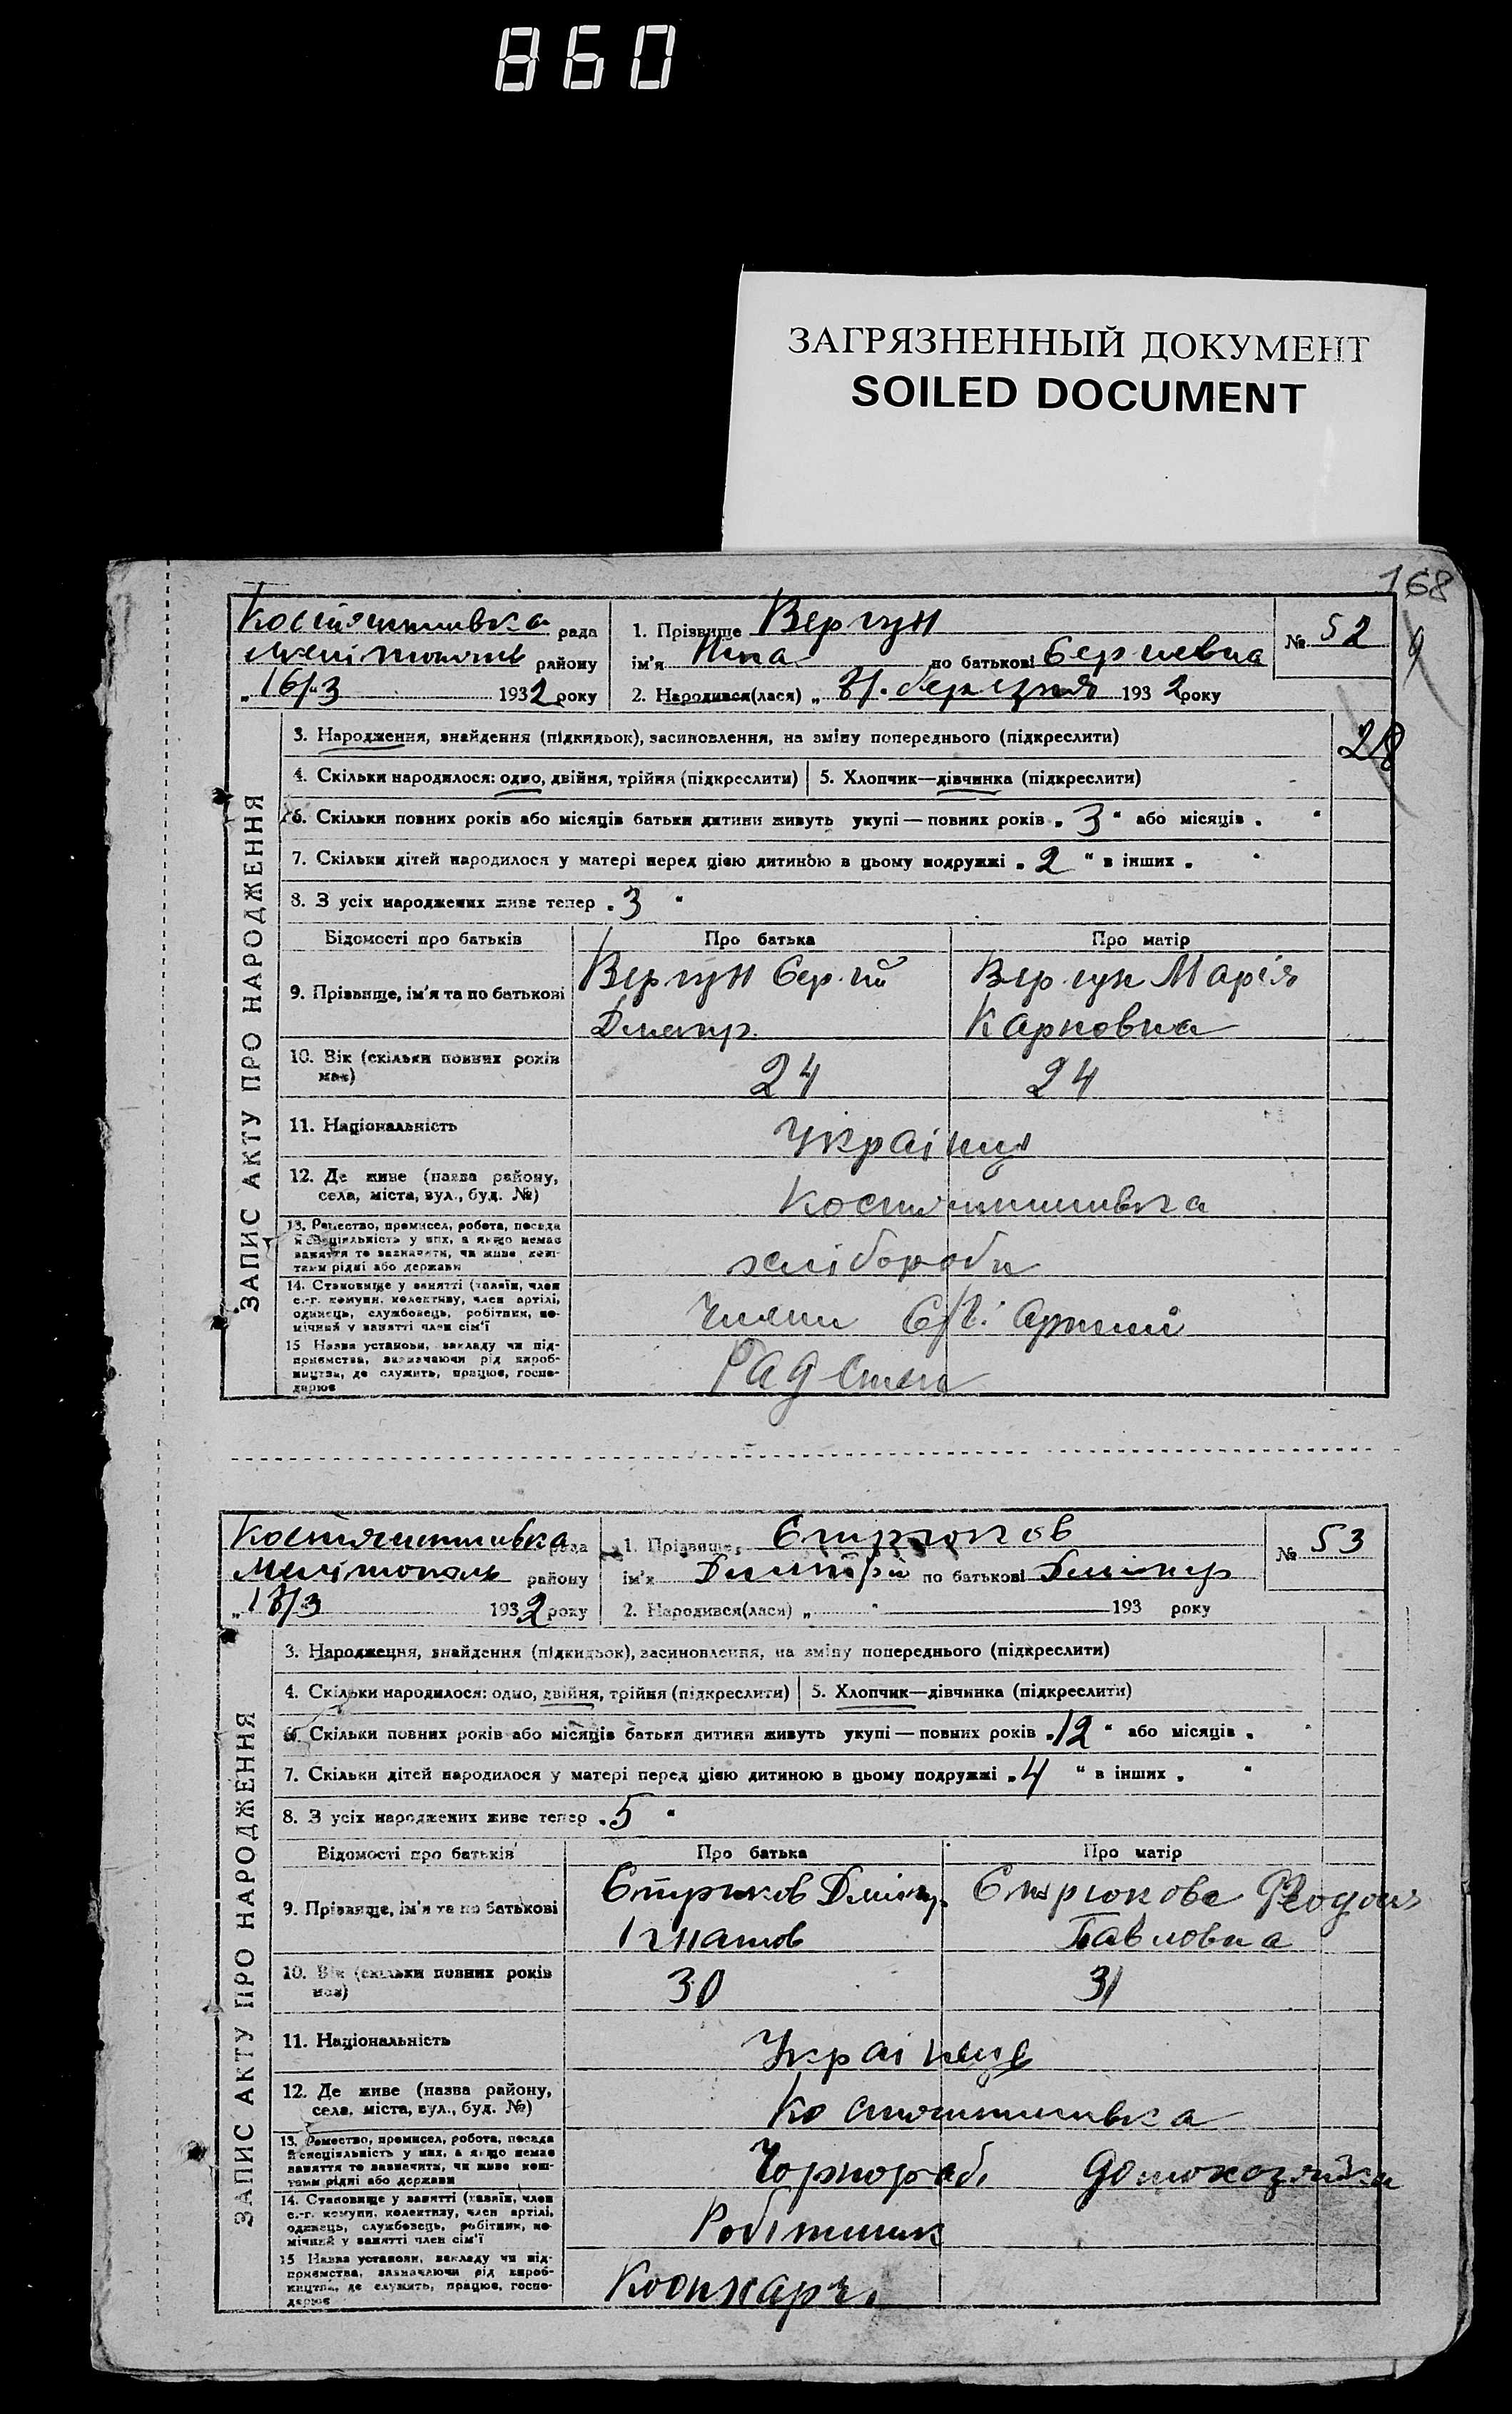 860
ЗАГРЯЗНЕННЫЙ ДОКУМЕНТ
SOILED DOCUMENT
168
Костянтинівка рада
Мелітополь району
„16/3 1932 року
1. Прізвище Вергун
ім'я Ніна по батькові Сергиевна
2. Народився(лася) „ березня 1932 року
№ 52
9
28
ЗАПИС АКТУ ПРО НАРОДЖЕННЯ
3. Народження, знайдення (підкидьок), засиновлення, на зміну попереднього (підкреслити)
4. Скільки народилося: одно, двійня, трійня (підкреслити) 5. Хлопчик—дівчинка (підкреслити)
6. Скільки повних років або місяців батьки дитини живуть укупі — повних років „ 3 “ або місяців „ “
7. Скільки дітей народилося у матері перед цією дитиною в цьому подружжі „ 2 “ в інших „ “
8. З усіх народжених живе тепер „ 3 “
Відомості про батьків Про батька Про матір
9. Прізвище, ім'я та по батькові
Вергун Сергій
Дмитр.
Вергун Марія
Карповна
10. Вік (скільки повних років має) 24 24
11. Національність Українці
12. Де живе (назва району, села, міста, вул., буд. №) Костянтинівка
13. Ремество, промисел, робота, посада й спеціяльність у них, а якщо немає заняття то зазначити, чи живе коштами рідні або держави хлібороби
14. Становище у занятті (хазяїн, член с.-г. комуни, колективу, член артілі, одинець, службовець, робітник, помічний у занятті член сім'ї Члени С/Г. Артілі
15 Назва установи, закладу чи підприємства, зазначаючи рід виробництва, де служить, працює, господарює Рад Степ
Костянтинівка рада
Мелітополь району
„18/3 1932 року
1. Прізвище Стирюков
ім'я Дмитрій по батькові Дмітр
2. Народився(лася) „ “ 193 року
№ 53
ЗАПИС АКТУ ПРО НАРОДЖЕННЯ
3. Народження, знайдення (підкидьок), засиновлення, на зміну попереднього (підкреслити)
4. Скільки народилося: одно, двійня, трійня (підкреслити) 5. Хлопчик—дівчинка (підкреслити)
6. Скільки повних років або місяців батьки дитини живуть укупі — повних років „ 12 “ або місяців „ “
7. Скільки дітей народилося у матері перед цією дитиною в цьому подружжі „ 4 “ в інших „ “
8. З усіх народжених живе тепер „ 5 “
Відомості про батьків Про батька Про матір
9. Прізвище, ім'я та по батькові
Стирюков Дмітр.
Ігнатов
Стирюкова
Павловна
10. Вік (скільки повних років має) 30 31
11. Національність Українці
12. Де живе (назва району, села, міста, вул., буд. №) Костянтинівка
13. Ремество, промисел, робота, посада й спеціяльність у них, а якщо немає заняття то зазначити, чи живе коштами рідні або держави Чорнораб. домохозяйка
14. Становище у занятті (хазяїн, член с.-г. комуни, колективу, член артілі, одинець, службовець, робітник, помічний у занятті член сім'ї Робітник
15 Назва установи, закладу чи підприємства, зазначаючи рід виробництва, де служить, працює, господарює